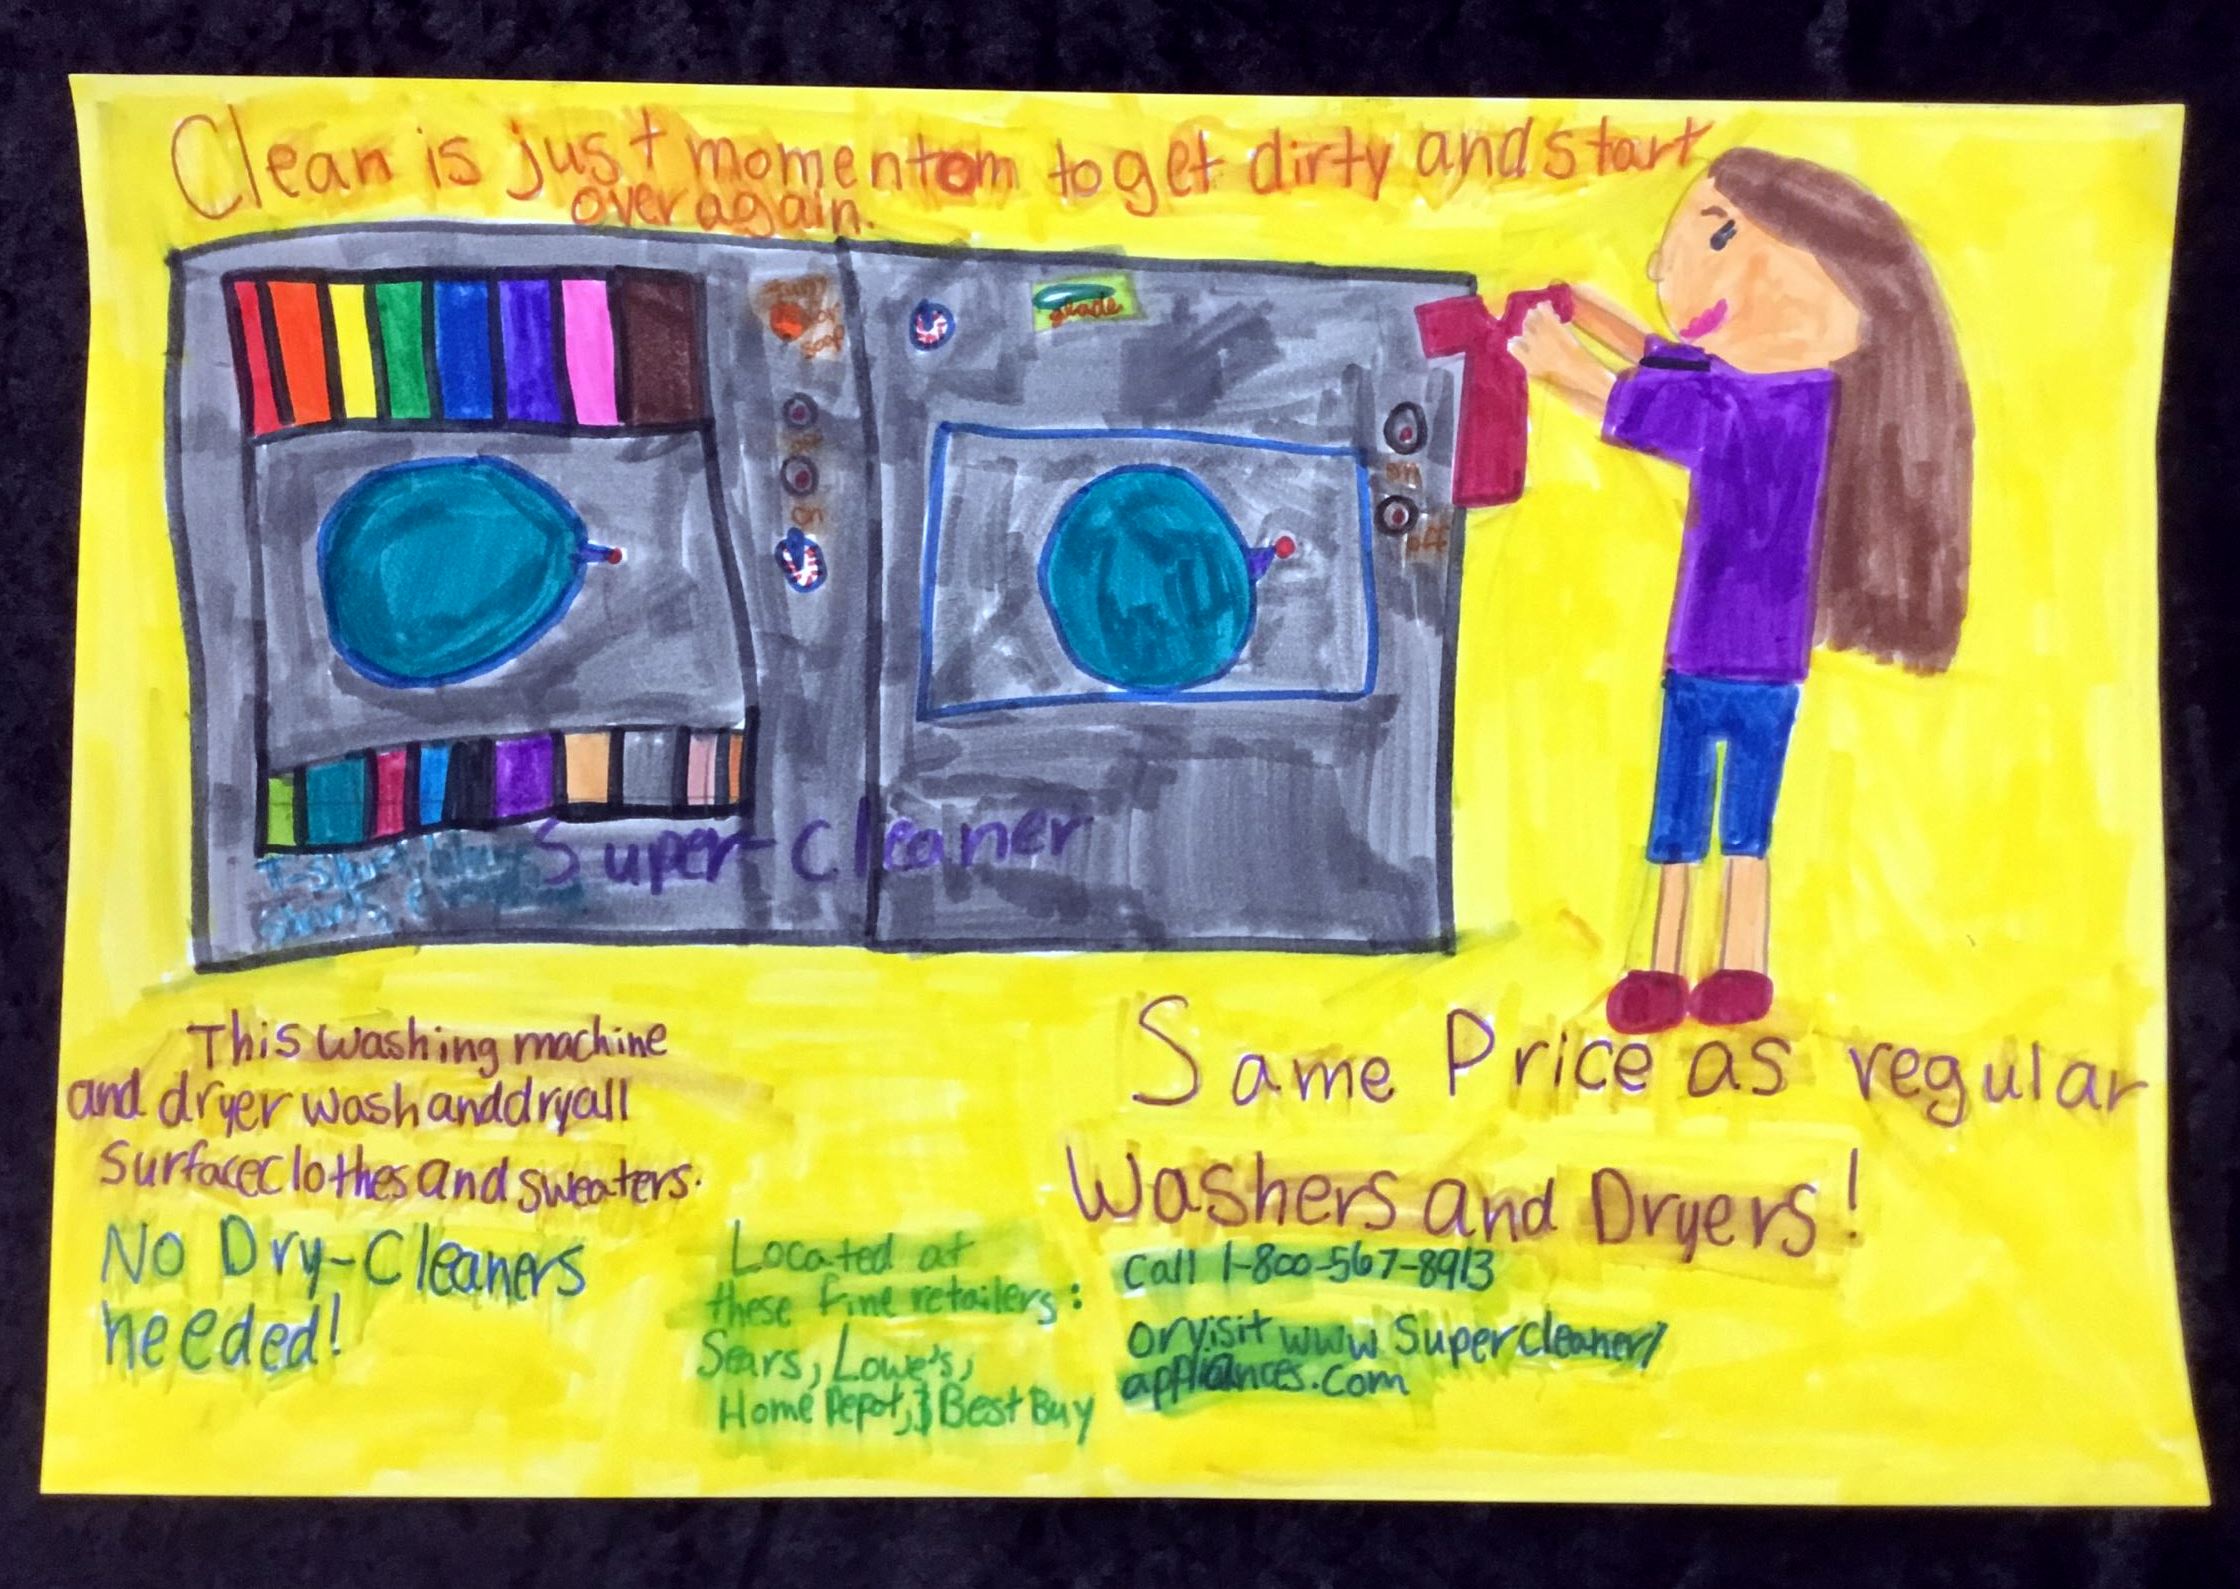 Clean is just momentom to get dirty and start
over again.
glade
soap
on
on
off
Super-Cleaner
T-Shirt
This washing machine
and dryer wash and dry all
surface clothes and sweaters.
No Dry-Cleaners
needed!
Located at
these fine retailers:
Sears, Lowe's,
Home Depot, & Best Buy
Same Price as regular
Washers and Dryers!
Call 1-800-567-8913
or visit www Supercleaner/
appliances.com